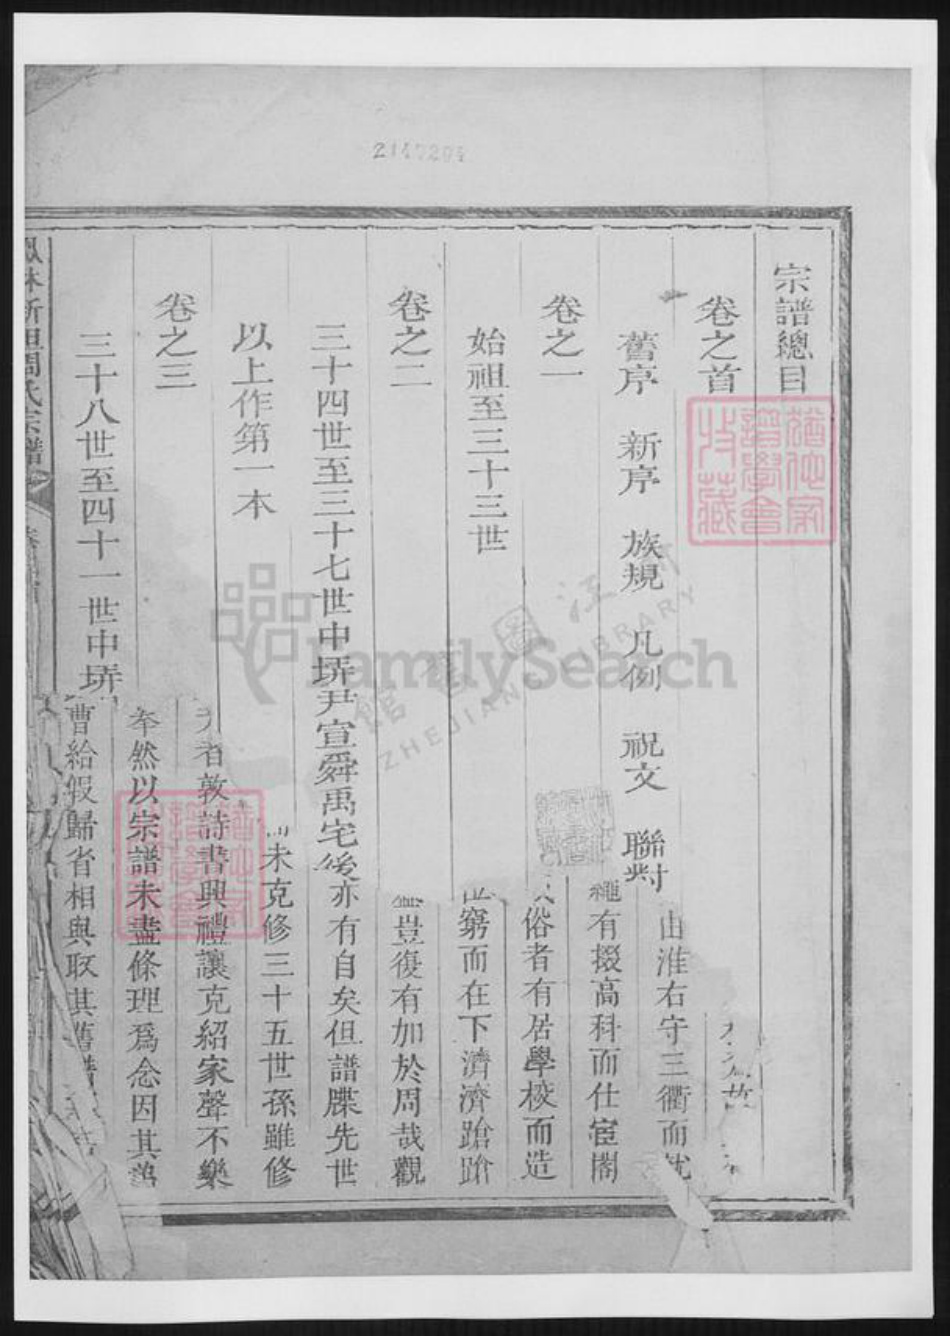 2147204
宗譜總目
卷之首
舊序 新序 族規 凡例 祝文 聯對
卷之一
始祖至三十三世
卷之二
三十四世至三十七世中㙮尹宣舜禹宅後
以上作第一本
卷之三
三十八世至四十一世中㙮
由淮右守三衢而
繩有掇高科而仕宦閣
俗者有居學校而造
窮而在下濟濟蹌蹌
豈復有加於周哉觀
亦有自矣但譜牒先世
未克修三十五世孫雖修
者敦詩書興禮讓克紹家聲不樂
然以宗譜未盡條理爲念因其
曹給假歸省相與取其舊譜
新 周氏宗譜
譜學會
收藏
浙江圖書館
ZHEJIANG LIBRARY
FamilySearch